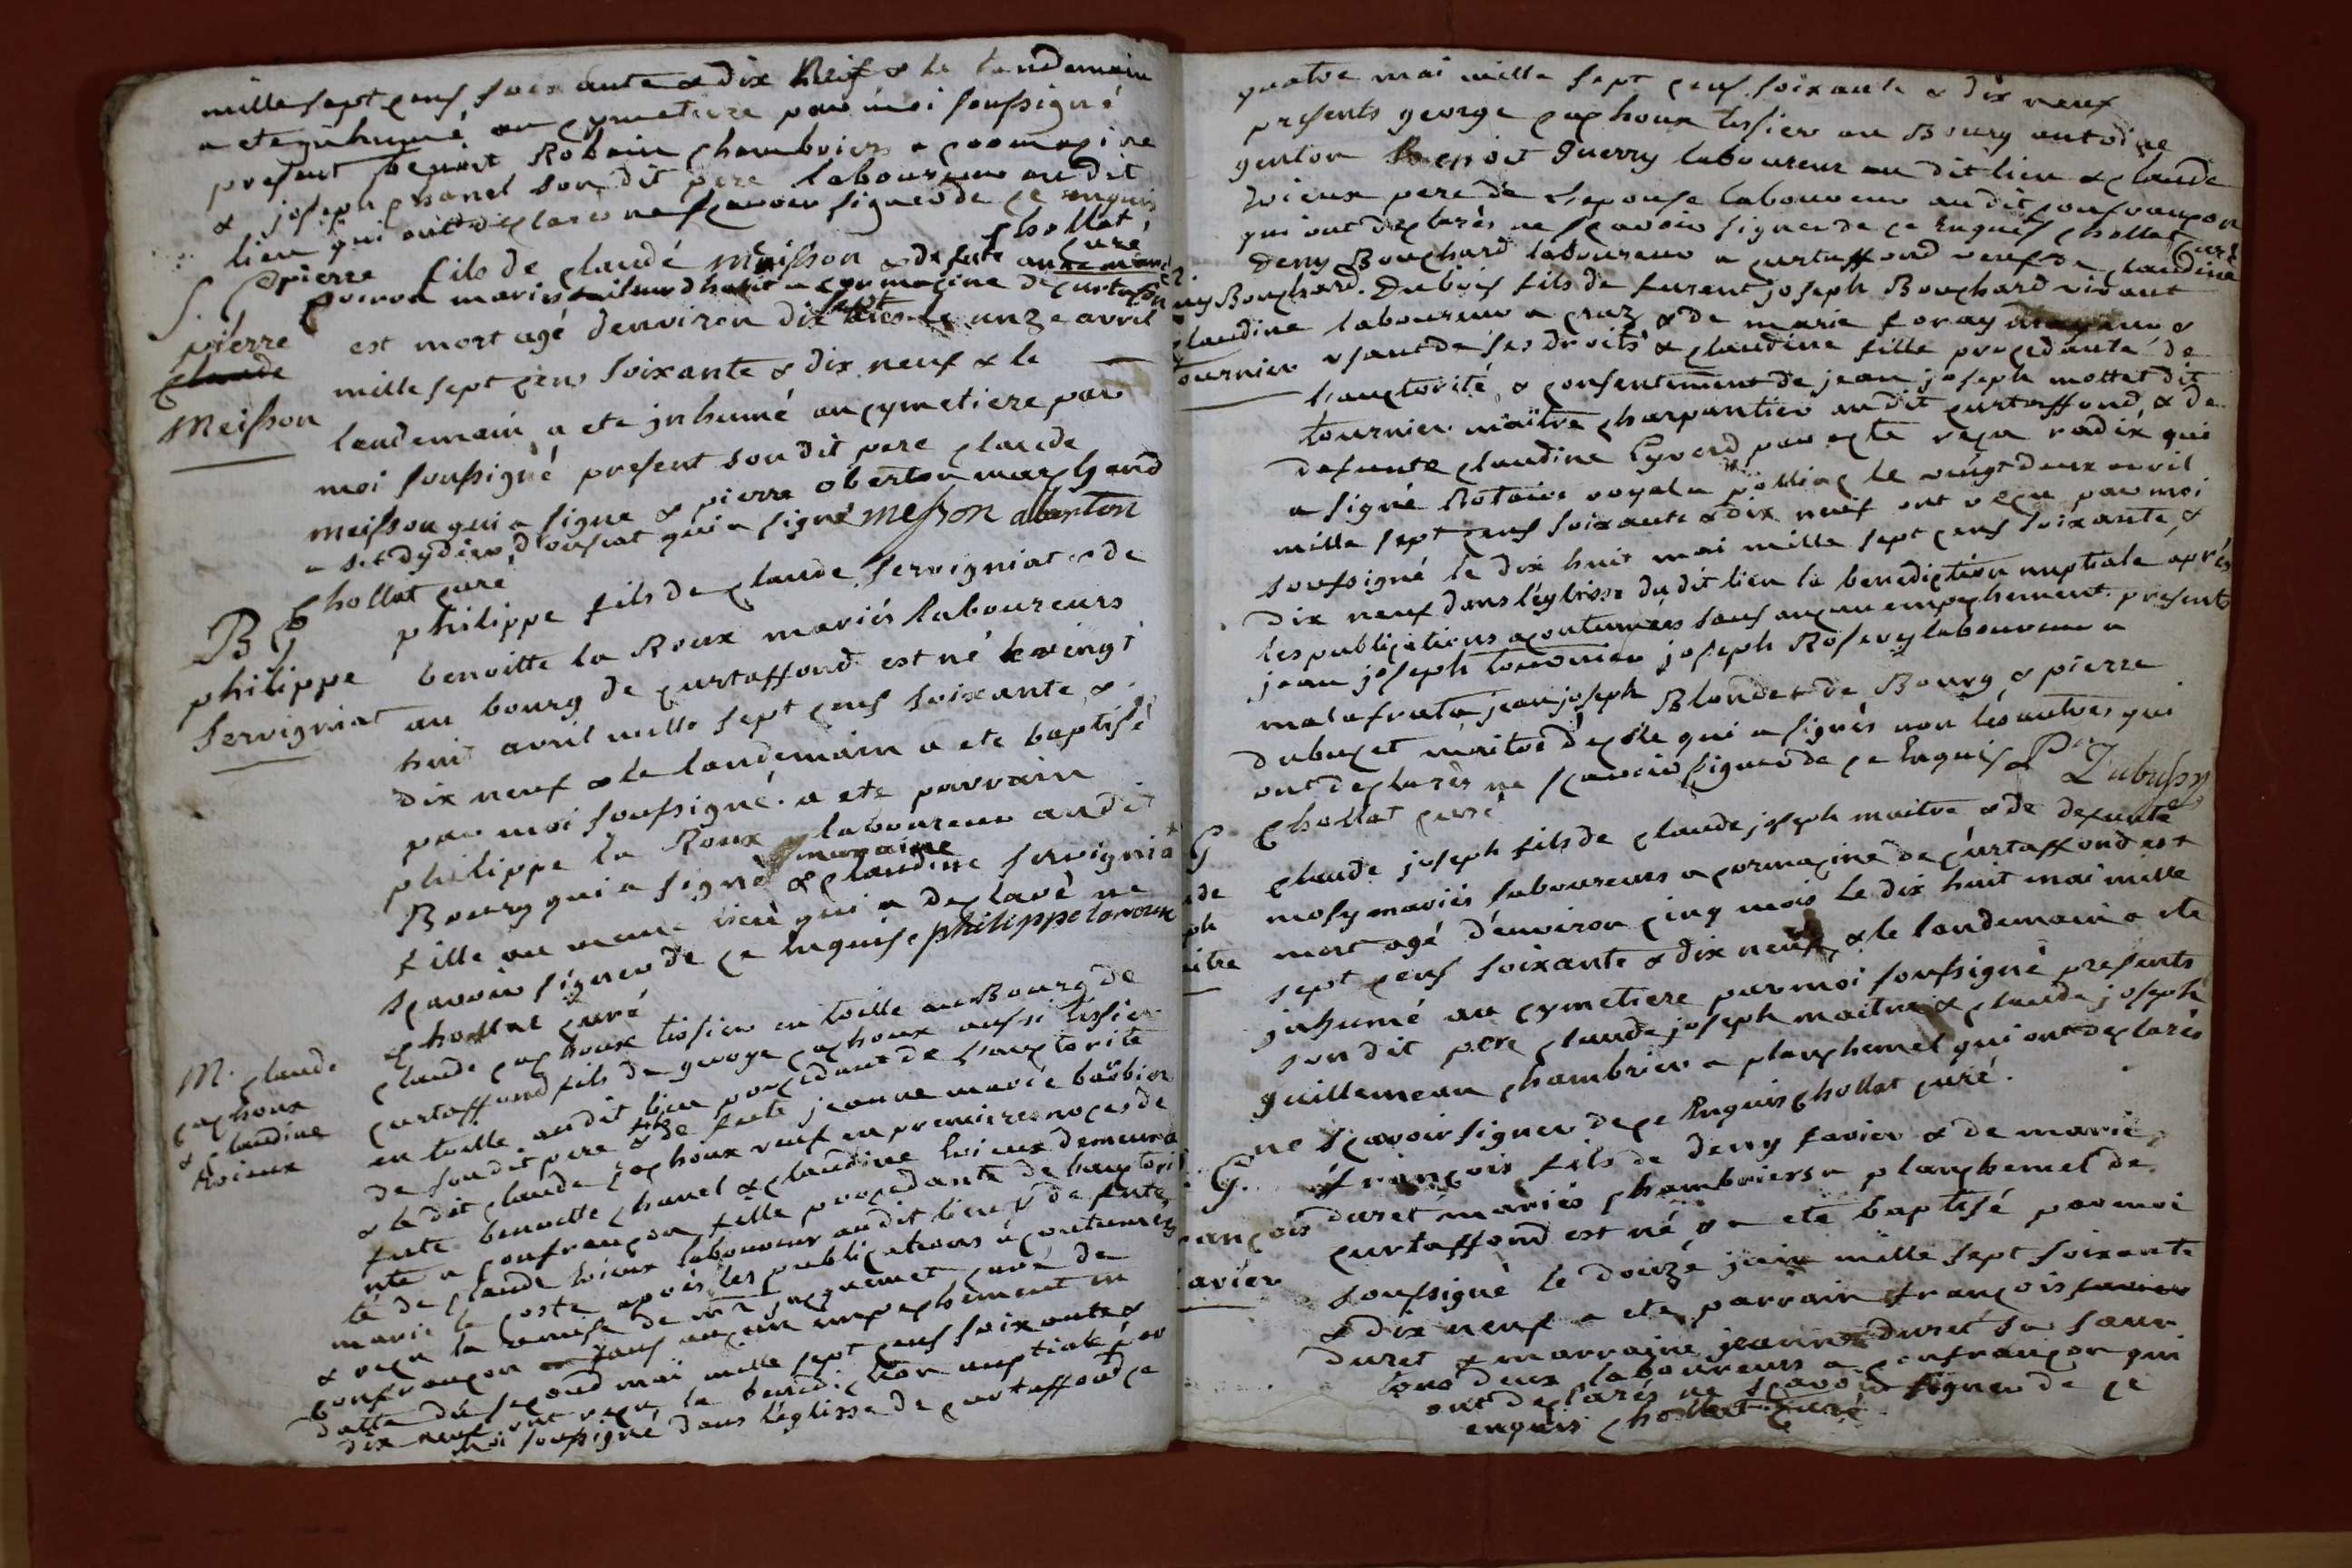 mille sept cens soixante & dix Neuf & le landemain
a ete inhumé au cymetiere par moi soussigné
present benoit Robain chambrier a cormozine
& joseph chanel son dit pere laboureur au dit
lieu qui ont declarés ne sçavoir signer de ce enquis
chollat curé
S. pierre fils de claude meisson & de fute
mariés a cormozine de curtaffon
pierre
claude
Meisson
est mort agé denviron dix sept ans le unze avril
mille sept cens soixante & dix neuf & le
landemain a ete inhumé au cymetiere par
moi soussigné present son dit pere claude
meisson qui a signe & pierre oberton marchand
a st dydier d'oussiat qui a signé messon aberton
chollat curé
B
philippe
servigniat
philippe fils de claude servigniat & de
benoitte la Roux mariés laboureurs
au bourg de curtaffond est né le vingt
huit avril mille sept cens soixante &
dix neuf & le landemain a ete baptisé
par moi soussigné. a ete parrain
philippe la Roux laboureur au dit
Bourg qui a signé & marraine claudine servigniat
fille au meme lieu qui a declaré ne
sçavoir signer de ce enquise philippe laroux
chollat curé
M. claude
cachoux
& claudine
Rvieux
claude cachoux tissier en toille au Bourg de
curtaffond fils de george cachoux aussi tissier
en toille au dit lieu procedant de l'auctorité
de son dit pere & de fute jeanne marie barbier
& le dit claude cachoux veuf en premieres noces de
fute benoitte chanel & claudine Rvieux demeura
nte a confrançon fille procedante de l'auctori
té de claude Rvieux laboureur au dit lieu & de fute
marie la coste apres les publications acoutumées
& reçu la remise de mre jacquemet curé de
confrançon sans aucun empechement en
datte du second mai mille sept cens soixante &
dix neuf ont reçu la benediction nuptiale par
moi soussigné dans l'églisse de curtaffond ce
quatre mai mille sept cens soixante & dix neuf
presents george cachoux tissier au Bourg antoine
genton Benoit guerry laboureur au dit lieu & claude
Rvieux pere de l'epouse laboureur au dit confrançon
qui ont declarés ne sçavoir signer de ce Enquis chollat curé
deny Bouchard laboureur a curtaffond veuf de claudine
ny Bouchard. Dubois fils de furent joseph Bouchard vivant
claudine laboureur a cruz & de marie foray &
tournier usant de ses droits & claudine fille procedante de
l'auctorité & consentement de jean joseph mottet dit
tournier maitre charpantier au dit curtaffond & de
defunte claudine Eyverd par acte reçu radix qui
a signé Notaire royal a polliac le vingt deux avril
mille sept cens soixante & dix neuf ont reçu par moi
soussigné le dix huit mai mille sept cens soixante &
dix neuf dans l'églisse du dit lieu la benediction nuptiale aprés
les publications acoutumées sans aucun empechement. presents
jean joseph tournier joseph Roserry laboureur a
malafrata jean joseph Blondet de Bourg & pierre
dubuzet maitre d'ecole qui a signés non les autres qui
ont declarés ne sçavoir signer de ce Enquis P Dubussy
chollat curé
G
de
ph
aitre
claude joseph fils de claude joseph maitre & de defunte
mosy mariés laboureurs a cormozine de curtaffond est
mort agé d'environ cinq mois le dix huit mai mille
sept cens soixante & dix neuf & le landemain a ete
inhumé au cymetiere par moi soussigné presents
son dit pere claude joseph maitre & claude joseph
guillemeau chambrier a planchemel qui ont declarés
ne sçavoir signer de ce Enquis chollat curé.
G.
ançois
avier
françois fils de deny favier & de marie
duret mariés chambriers a planchemel de
curtaffond est né & a ete baptisé par moi
soussigné le douze juin mille sept soixante
& dix neuf a ete parrain françois favier
duret & marraine jeanne duret sa sœur
tous deux laboureurs a confrançon qui
ont declarés ne sçavoir signer de ce
enquis chollat curé